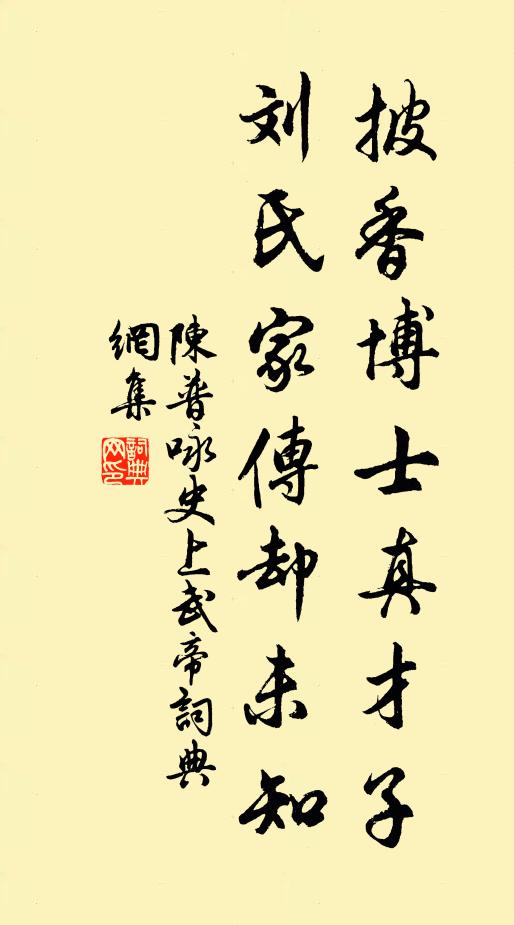 披香博士真才子
刘氏家傳却未知
陳普咏史上武帝詞典
網集
詞典
网印